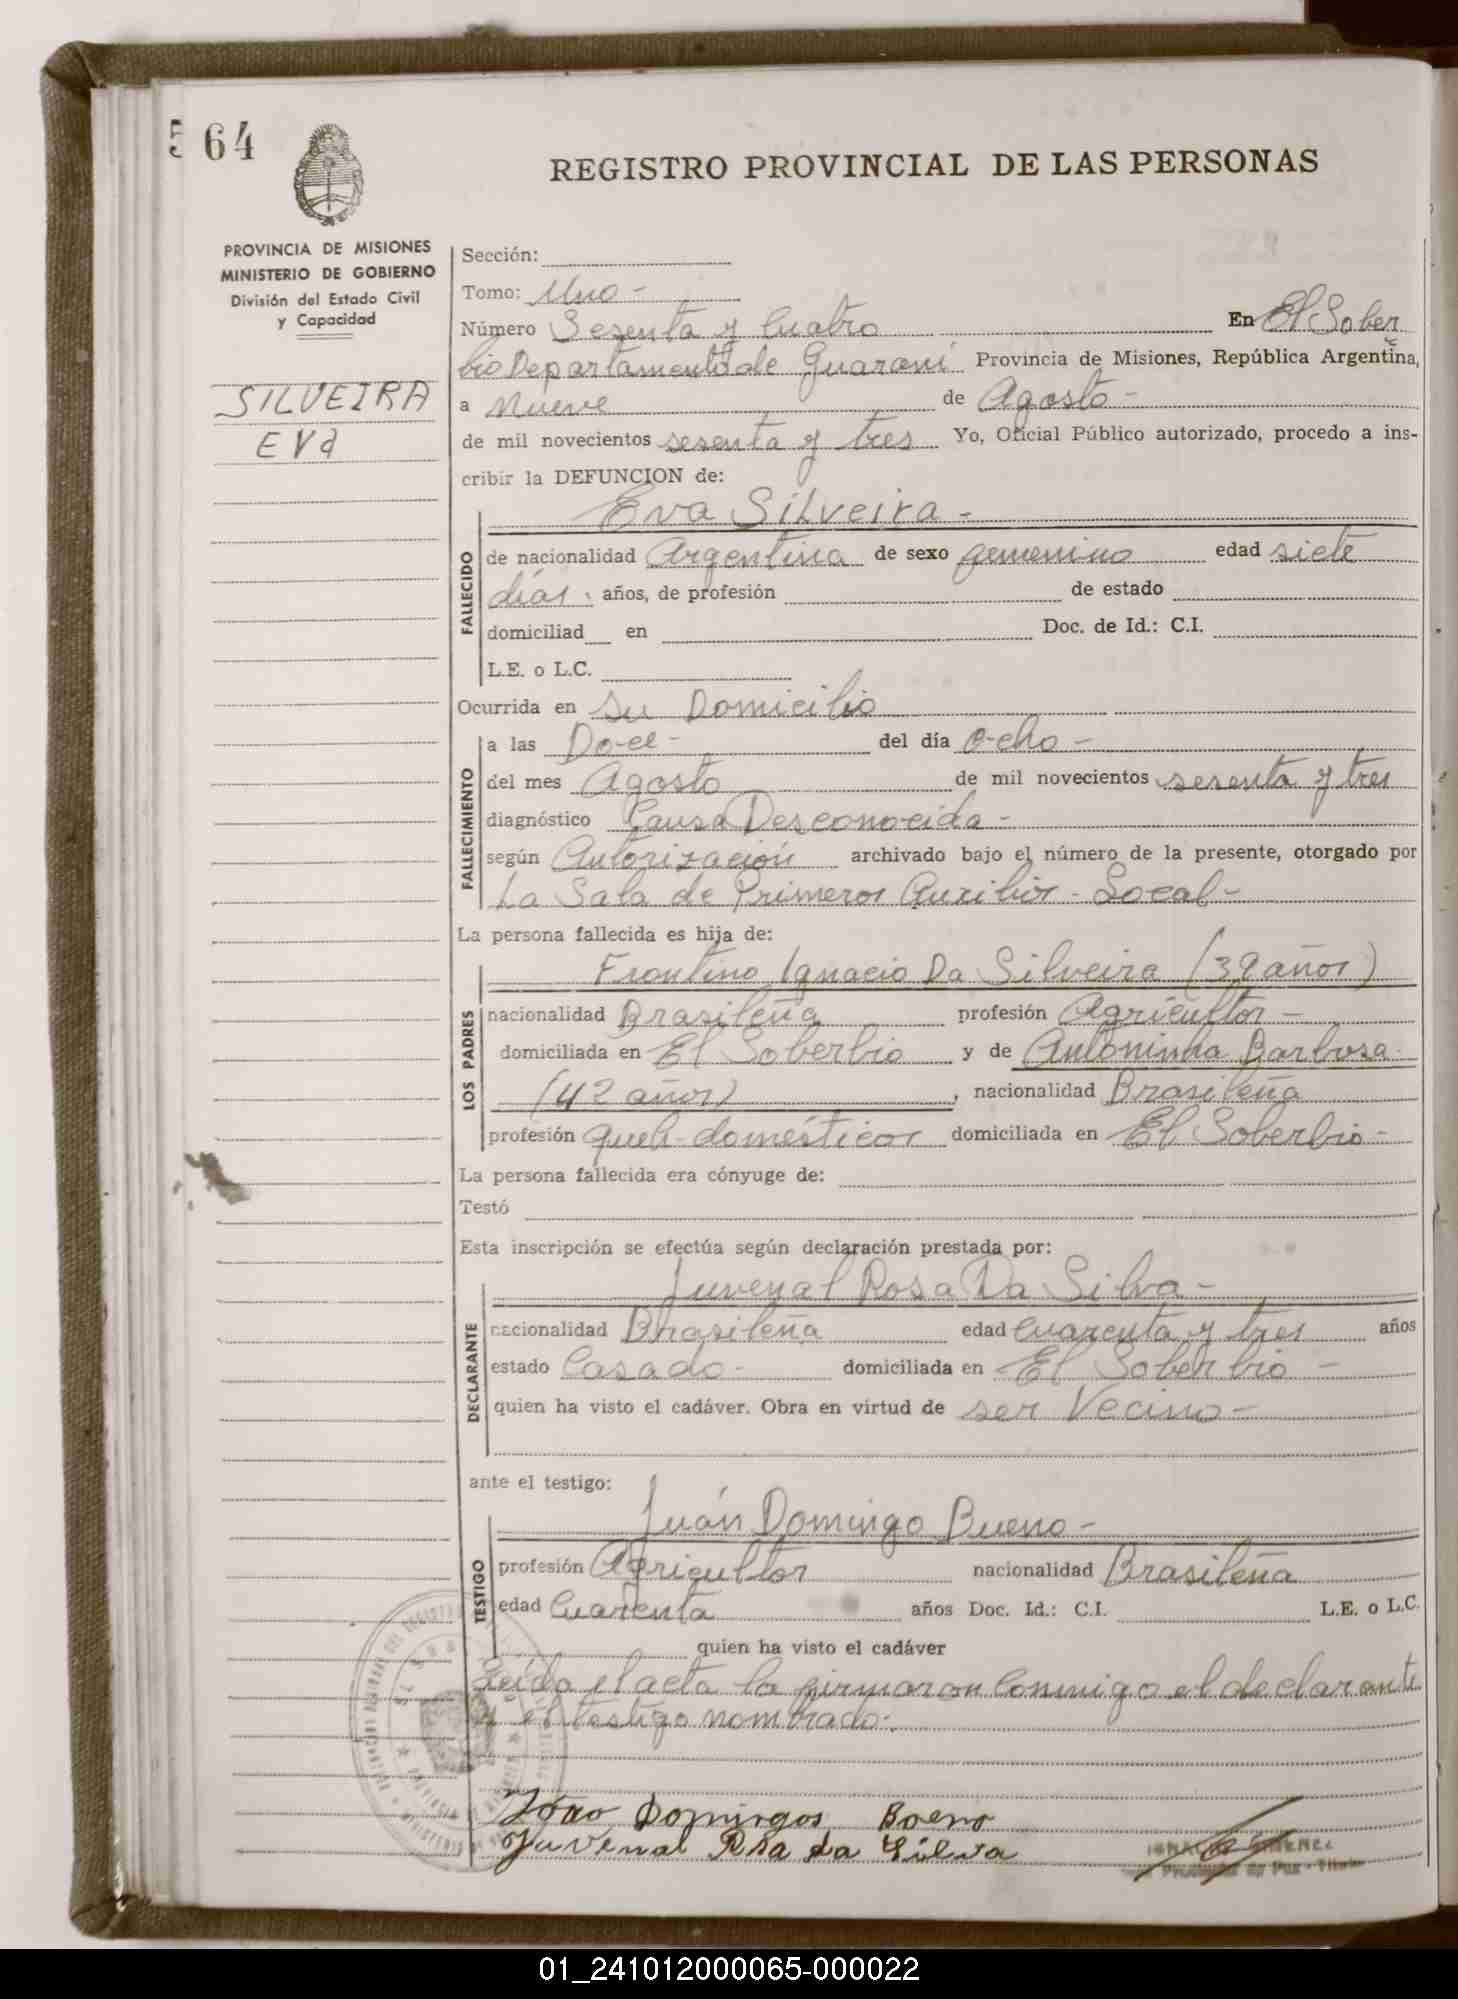 64
REGISTRO PROVINCIAL DE LAS PERSONAS
PROVINCIA DE MISIONES
MINISTERIO DE GOBIERNO
División del Estado Civil
y Capacidad
SILVEIRA
EVA
Sección:
Tomo: Uno-
Número Sesenta y Cuatro En El Sober
bio Departamento de Guaraní Provincia de Misiones, República Argentina,
a Nueve de Agosto-
de mil novecientos sesenta y tres Yo, Oficial Público autorizado, procedo a ins-
cribir la DEFUNCION de:
Eva Silveira-
FALLECIDO
de nacionalidad Argentina de sexo femenino edad siete
días. años, de profesión de estado
domiciliad en Doc. de Id.: C.I.
L.E. o L.C.
Ocurrida en su Domicilio
FALLECIMIENTO
a las Doce- del día ocho-
del mes Agosto de mil novecientos sesenta y tres
diagnóstico Causa Desconocida-
según Autorización archivado bajo el número de la presente, otorgado por
La Sala de Primeros Auxilios-Local-
La persona fallecida es hija de:
LOS PADRES
Frontino Ignacio Da Silveira (39 años)
nacionalidad Brasileña profesión Agricultor-
domiciliada en El Soberbio y de Antoninha Barbosa-
(42 años), nacionalidad Brasileña
profesión queh-domésticos domiciliada en El Soberbio-
La persona fallecida era cónyuge de:
Testó
Esta inscripción se efectúa según declaración prestada por:
DECLARANTE
Juvenal Rosa Da Silva-
nacionalidad Brasileña edad Cuarenta y tres años
estado Casado- domiciliada en El Soberbio-
quien ha visto el cadáver. Obra en virtud de ser Vecino-
ante el testigo:
TESTIGO
Juán Domingo Bueno-
profesión Agricultor nacionalidad Brasileña
edad Cuarenta años Doc. Id.: C.I. L.E. o L.C.
quien ha visto el cadáver
Leída el acta la firmaron Conmigo el declarante
y el testigo nombrado.
João Domingos Boeno
Juvenal Rsa da Silva
01_241012000065-000022